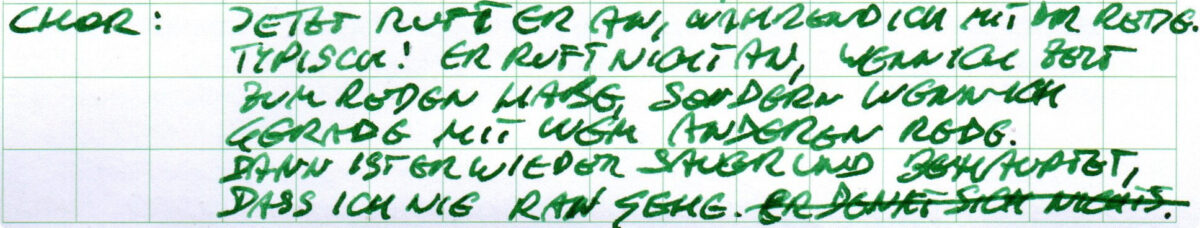 CHOR: JETZT RUFT ER AN, WÄHREND ICH MIT DIR REDE.
TYPISCH! ER RUFT NICHT AN, WENN ICH ZEIT
ZUM REDEN HABE, SONDERN WENN ICH
GERADE MIT WEM ANDEREN REDE.
DANN IST ER WIEDER SAUER UND BEHAUPTET,
DASS ICH NIE RAN GEHE. ER DENKT SICH NICHTS.